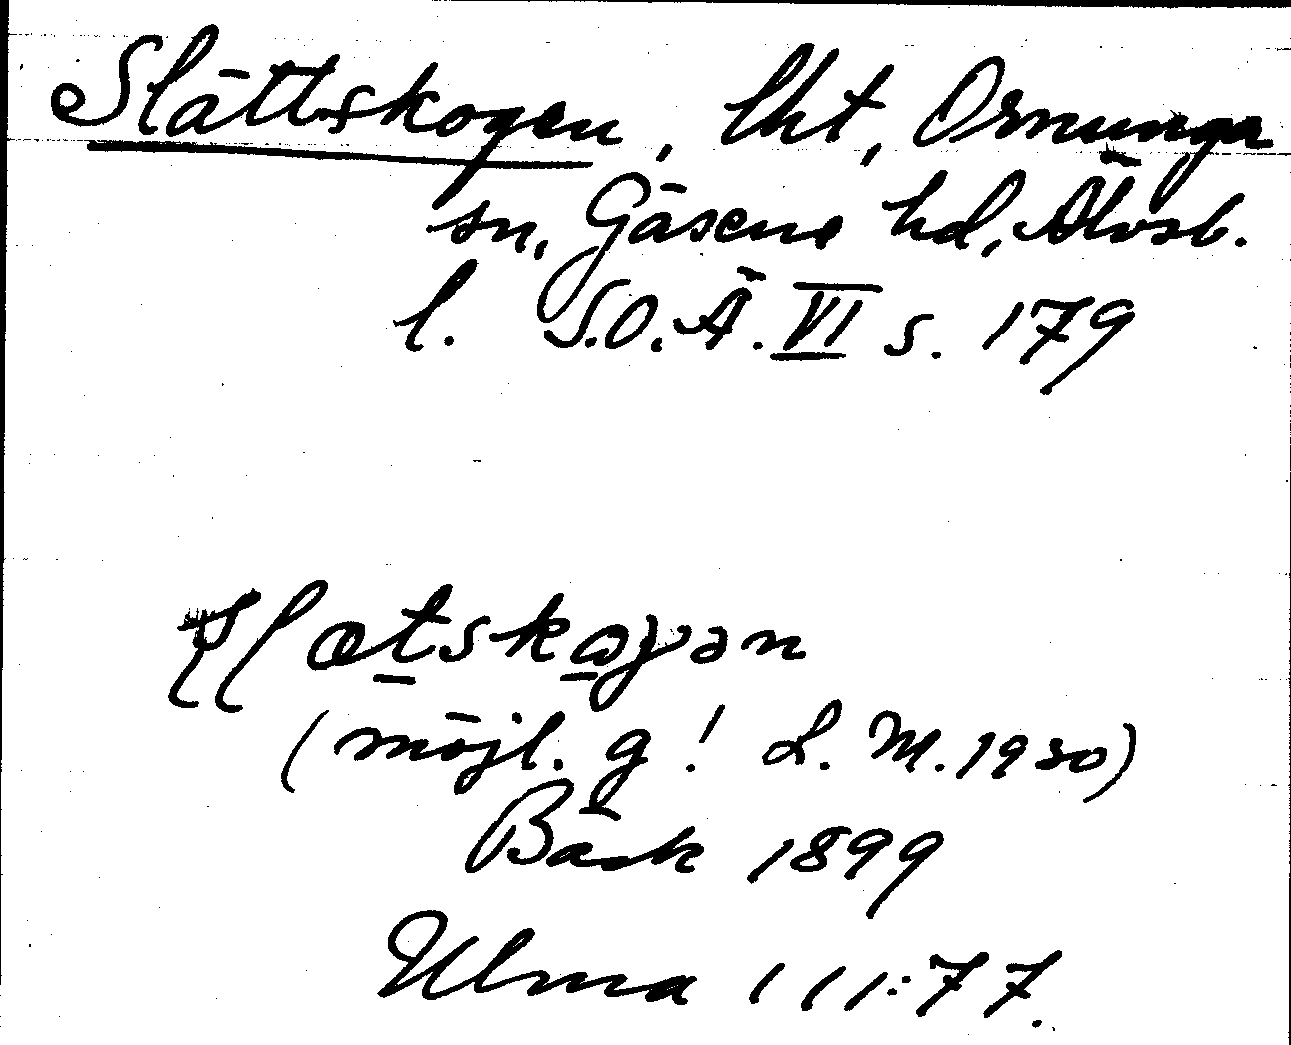 Slättskogen, lht, Ornunga
sn, Gäsene hd, Älvsb.
l. S.O.Ä. VI s. 179
slætskogən
(möjl. g! L. M. 1930)
Bäck 1899
Ulma 111:77.